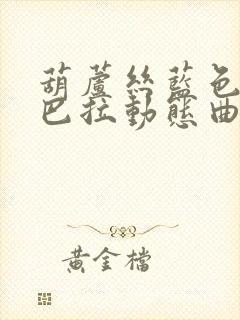 葫蘆絲藍色
巴拉動態曲
黃金檔